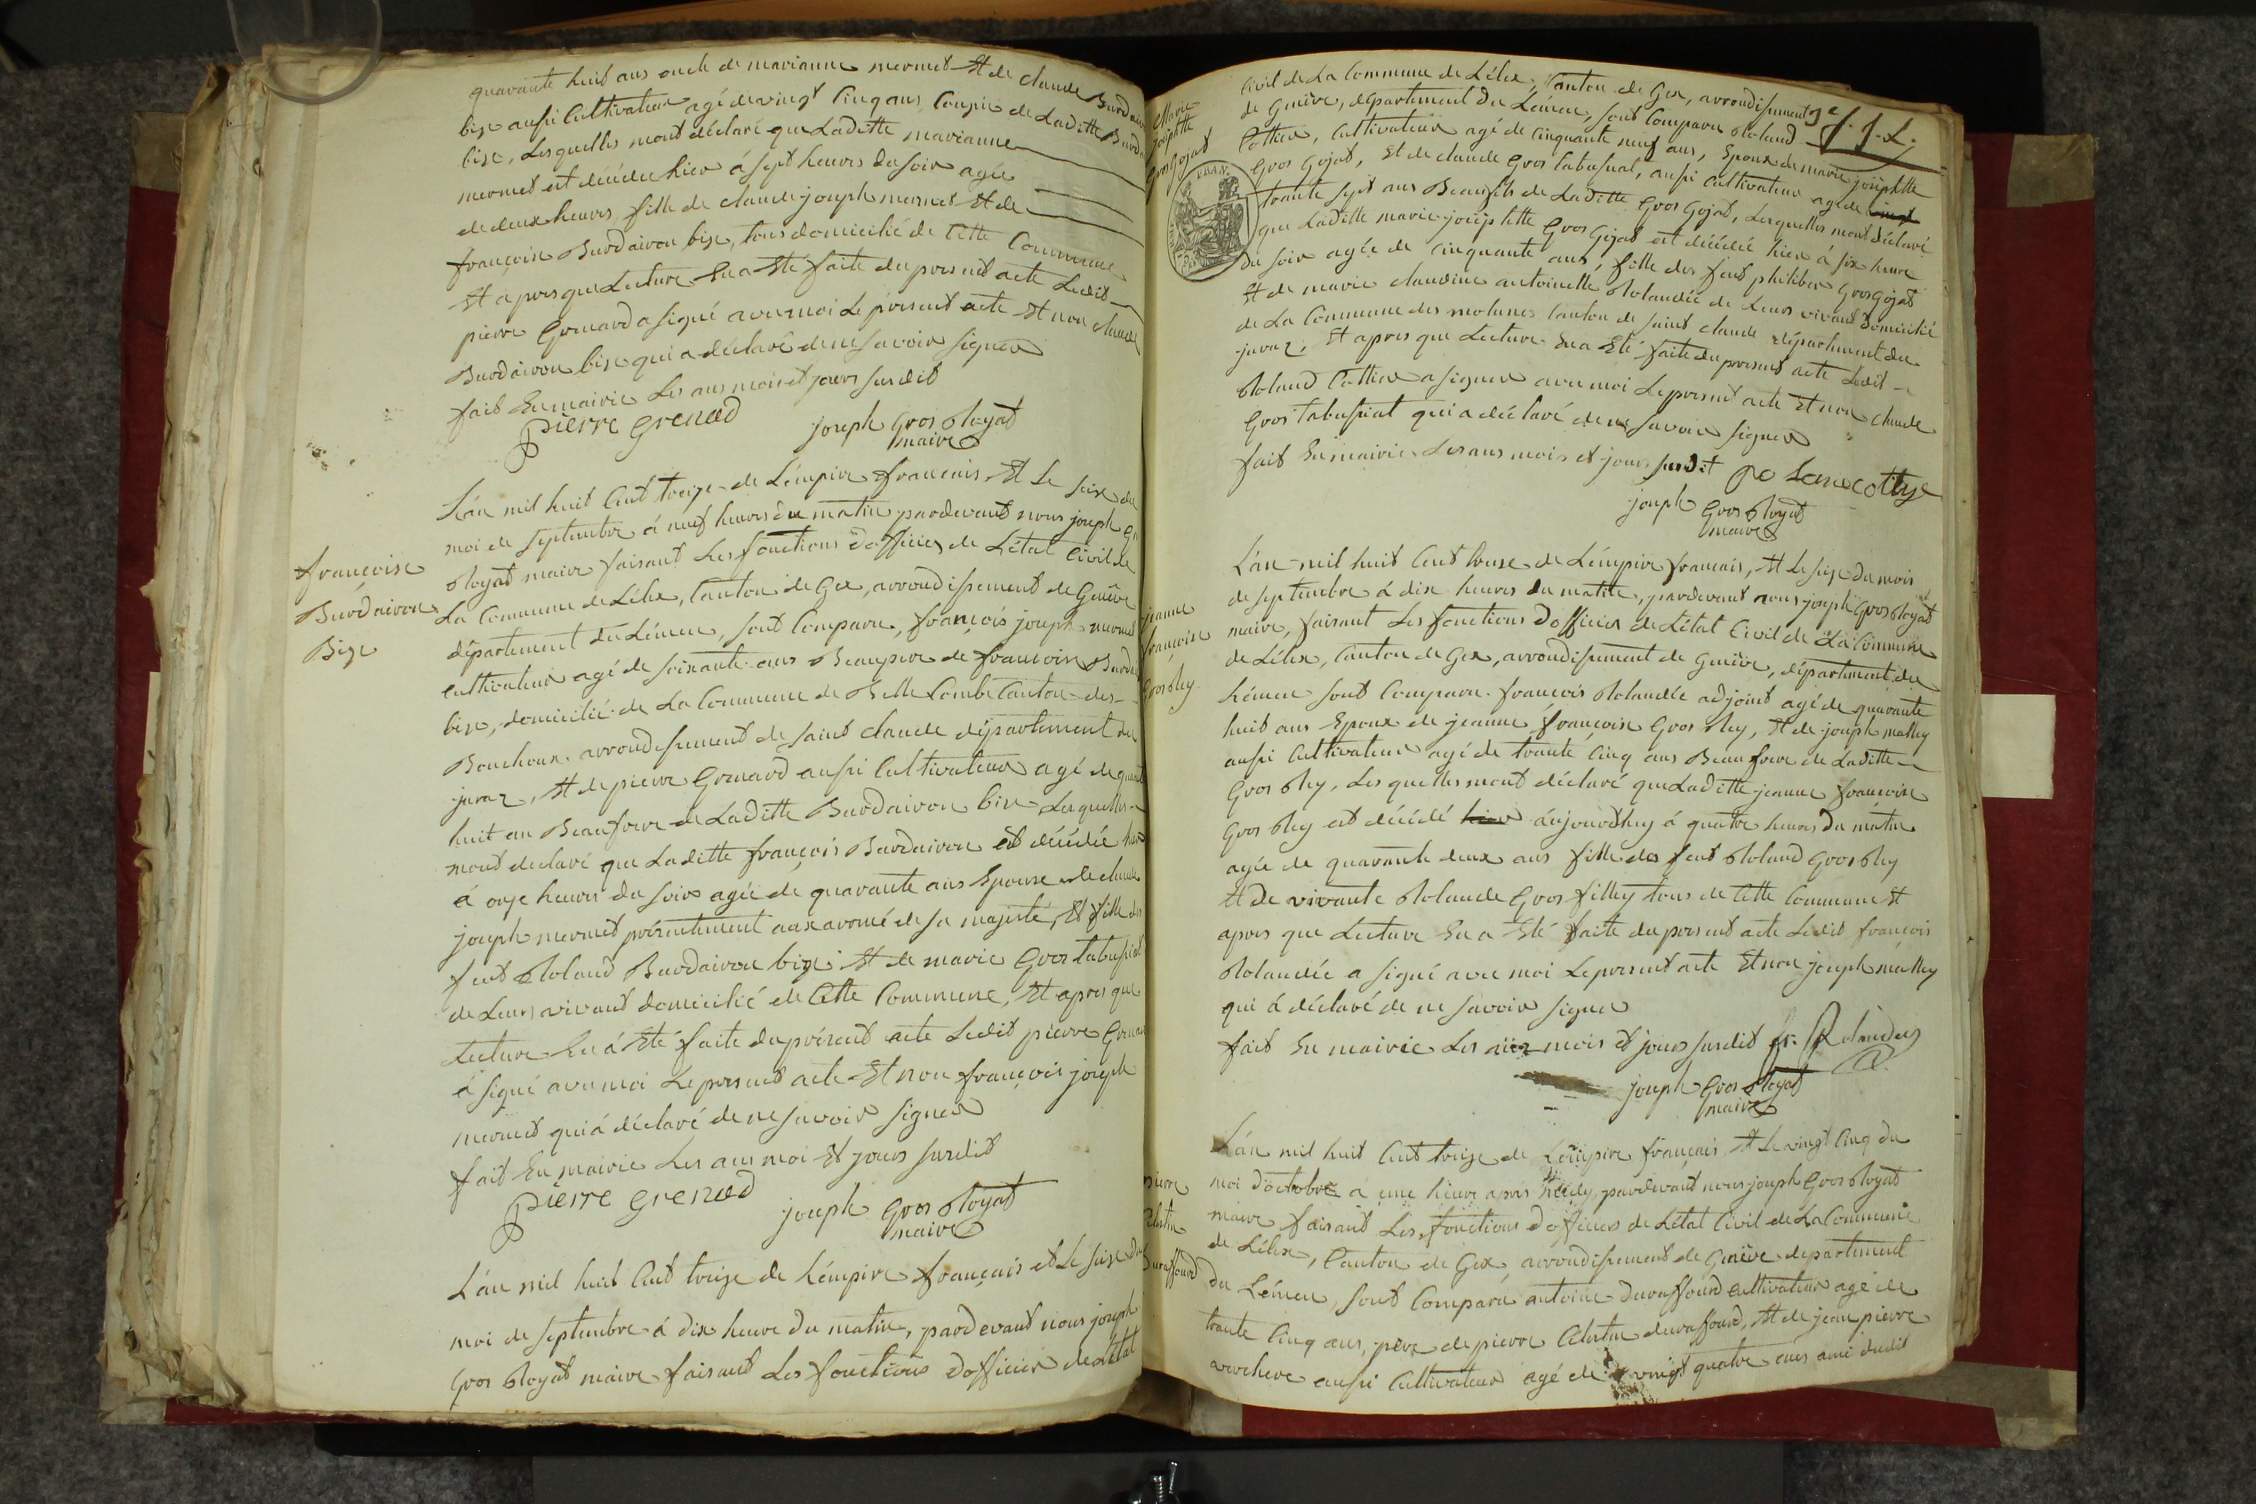 quarante huit ans oncle de marianne mermet Et de claude Burdairon
bise aussi Cultivateur agé de vingt Cinq ans Cousin de Laditte Burdairon
bise, Lesquelles mont déclaré que Laditte marianne
mermet est décédée hier á sept heures du soir agée
de deux heures, fille de claude joseph mermet Et de
françoise Burdairon bise, tous domicilié de Cette Commune
Et apres que Lecture En a Eté faite du present acte Ledit
pierre Grenard a signé avec moi Le present acte Et non claude
Burdairon bise qui a déclaré de ne savoir signer
fait En mairie Les ans mois et jours susdit
pierre grenard
joseph Gros Royat
maire
françoise
Burdairon
Bise
L'án mil huit Cent treize de L'émpire francais, Et Le seize du
moi de septembre á neuf heures du matin pardevant nous joseph Gros
Royat maire faisant Les fonctions d'officier de L'état Civil de
La Commune de Lélex, Canton de Gex, arrondissement de Genêve
département du Lémen, sont Comparu, françois joseph mermet
cultivateur agé de soixante ans Beaupere de francoise Burdairon
bise, domicilié de La Commune de Belle Combe Canton des
Bouchoux arrondissement de saint claude département du
juraz, Et de pierre Grenard aussi Cultivateur agé de quarante
huit an Beaufrere de Laditte Burdairon bise Lesquelles
mont declaré que Laditte françois Burdairon est décédée hier
á onze heures du soir agée de quarante ans Epouse de claude
joseph mermet présentement aux armé de sa majesté, Et fille des
feut Roland Burdairon bise Et de marie Gros tabussiat
de Leurs vivant domicilié de Cette Commune, Et apres que
Lecture En á Eté faite du présent acte Ledit pierre Grenard
á signé avec moi Le present acte Et non françois joseph
mermet qui á déclaré de ne savoir signer
fait En mairie Les ans moi Et jours susdit
pierre grenard
joseph Gros Royat
maire
L'án mil huit Cent treize de L'émpire français et Le seize du
moi de septembre á dix heure du matin, pardevant nous joseph
Gros Royat maire faisant Les fonctions d'officier de L'état
Marie
josephtte
Gros Gojat
Civil de La Commune de Lélex, Canton de Gex, arrondissement
de Genêve, département du Lémen, sont Comparu Roland
Cottier, Cultivateur agé de Cinquante neuf ans, Epoux de marie josephtte
Gros Gojat, Et de claude Gros tabussiat, aussi Cultivateur agé de vingt
trante sept ans Beaufils de Laditte Gros Gojat, Lesquelles mont déclaré
que Laditte marie josephtte Gros Gojat est décédée hier á six heure
du soir agée de cinquante ans, fille des feut philiber Gros Gojat
Et de marie claudine antoinette Rolandée de Leurs vivant domicilié
de La Commune des molunes Canton de saint claude département du
juraz, Et apres que Lecture En a Eté faite du present acte Ledit
Roland Cottier a signer avec moi Le present acte Et non claude
Gros tabussiat qui a déclaré de ne savoir signer
fait En mairie Les ans mois et jours susdit
joseph Gros Royat
maire
jeanne
françoise
Gros Rey
L'án mil huit Cent treize de L'émpire francais, Et Le seize du mois
de septembre á dix heures du matin, pardevant nous joseph Gros Royat
maire, faisant Les fonctions d'officier de L'état Civil de La Commune
de Lélex, Canton de Gex, arrondissement de Genêve, département du
Lémen sont Comparu francois Rolandée adjoint agé de quarante
huit ans Epoux de jeanne françoise Gros Rey, Et de joseph mathey
aussi Cultivateur agé de trante Cinq ans Beaufrere de Laditte
Gros Rey, Lesquelles mont déclaré que Laditte jeanne françoise
Gros Rey est décédé hier aujourdhuy á quatre heures du matin
agée de quarante deux ans fille des feut Roland Gros Rey
Et de vivante Rolande Gros filley tous de Cette Commune Et
apres que Lecture En a Eté faite du present acte Ledit françois
Rolandée a signé avec moi Le present acte Et non joseph mathey
qui á déclaré de ne savoir signer
fait En mairie Les ans mois et jours susdit fr. Rolandez
joseph Gros Royat
maire
pierre
Celestin
Duraffourd
L'án mil huit Cent treize de L'émpire français Et Le vingt Cinq du
moi d'octobre á une heure apres midy, pardevant nous joseph Gros Royat
maire faisant Les fonctions d'officier de L'état Civil de La Commune
de Lélex, Canton de Gex arrondissement de Genêve departement
du Lémen, sont Comparu antoine Duraffourd cultivateur agé de
trante Cinq ans, père de pierre Celestin duraffourd, Et de jean pierre
aussi Cultivateur agé de vingt quatre ans ami dudit